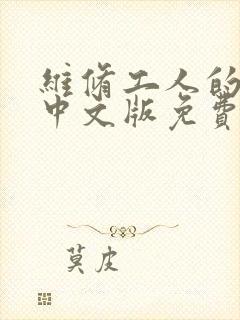 維脩工人的
中文版免費
莫皮